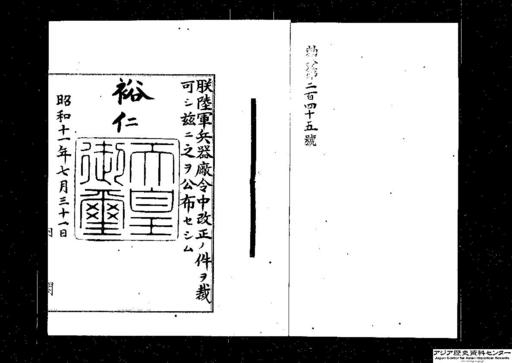 勅令第二百四十五號
朕陸軍兵器廠令中改正ノ件ヲ裁
可シ茲ニ之ヲ公布セシム
裕仁
天皇
御璽
昭和十一年七月三十一日
内
閣
アジア歴史資料センター
Japan Center for Asian Historical Records